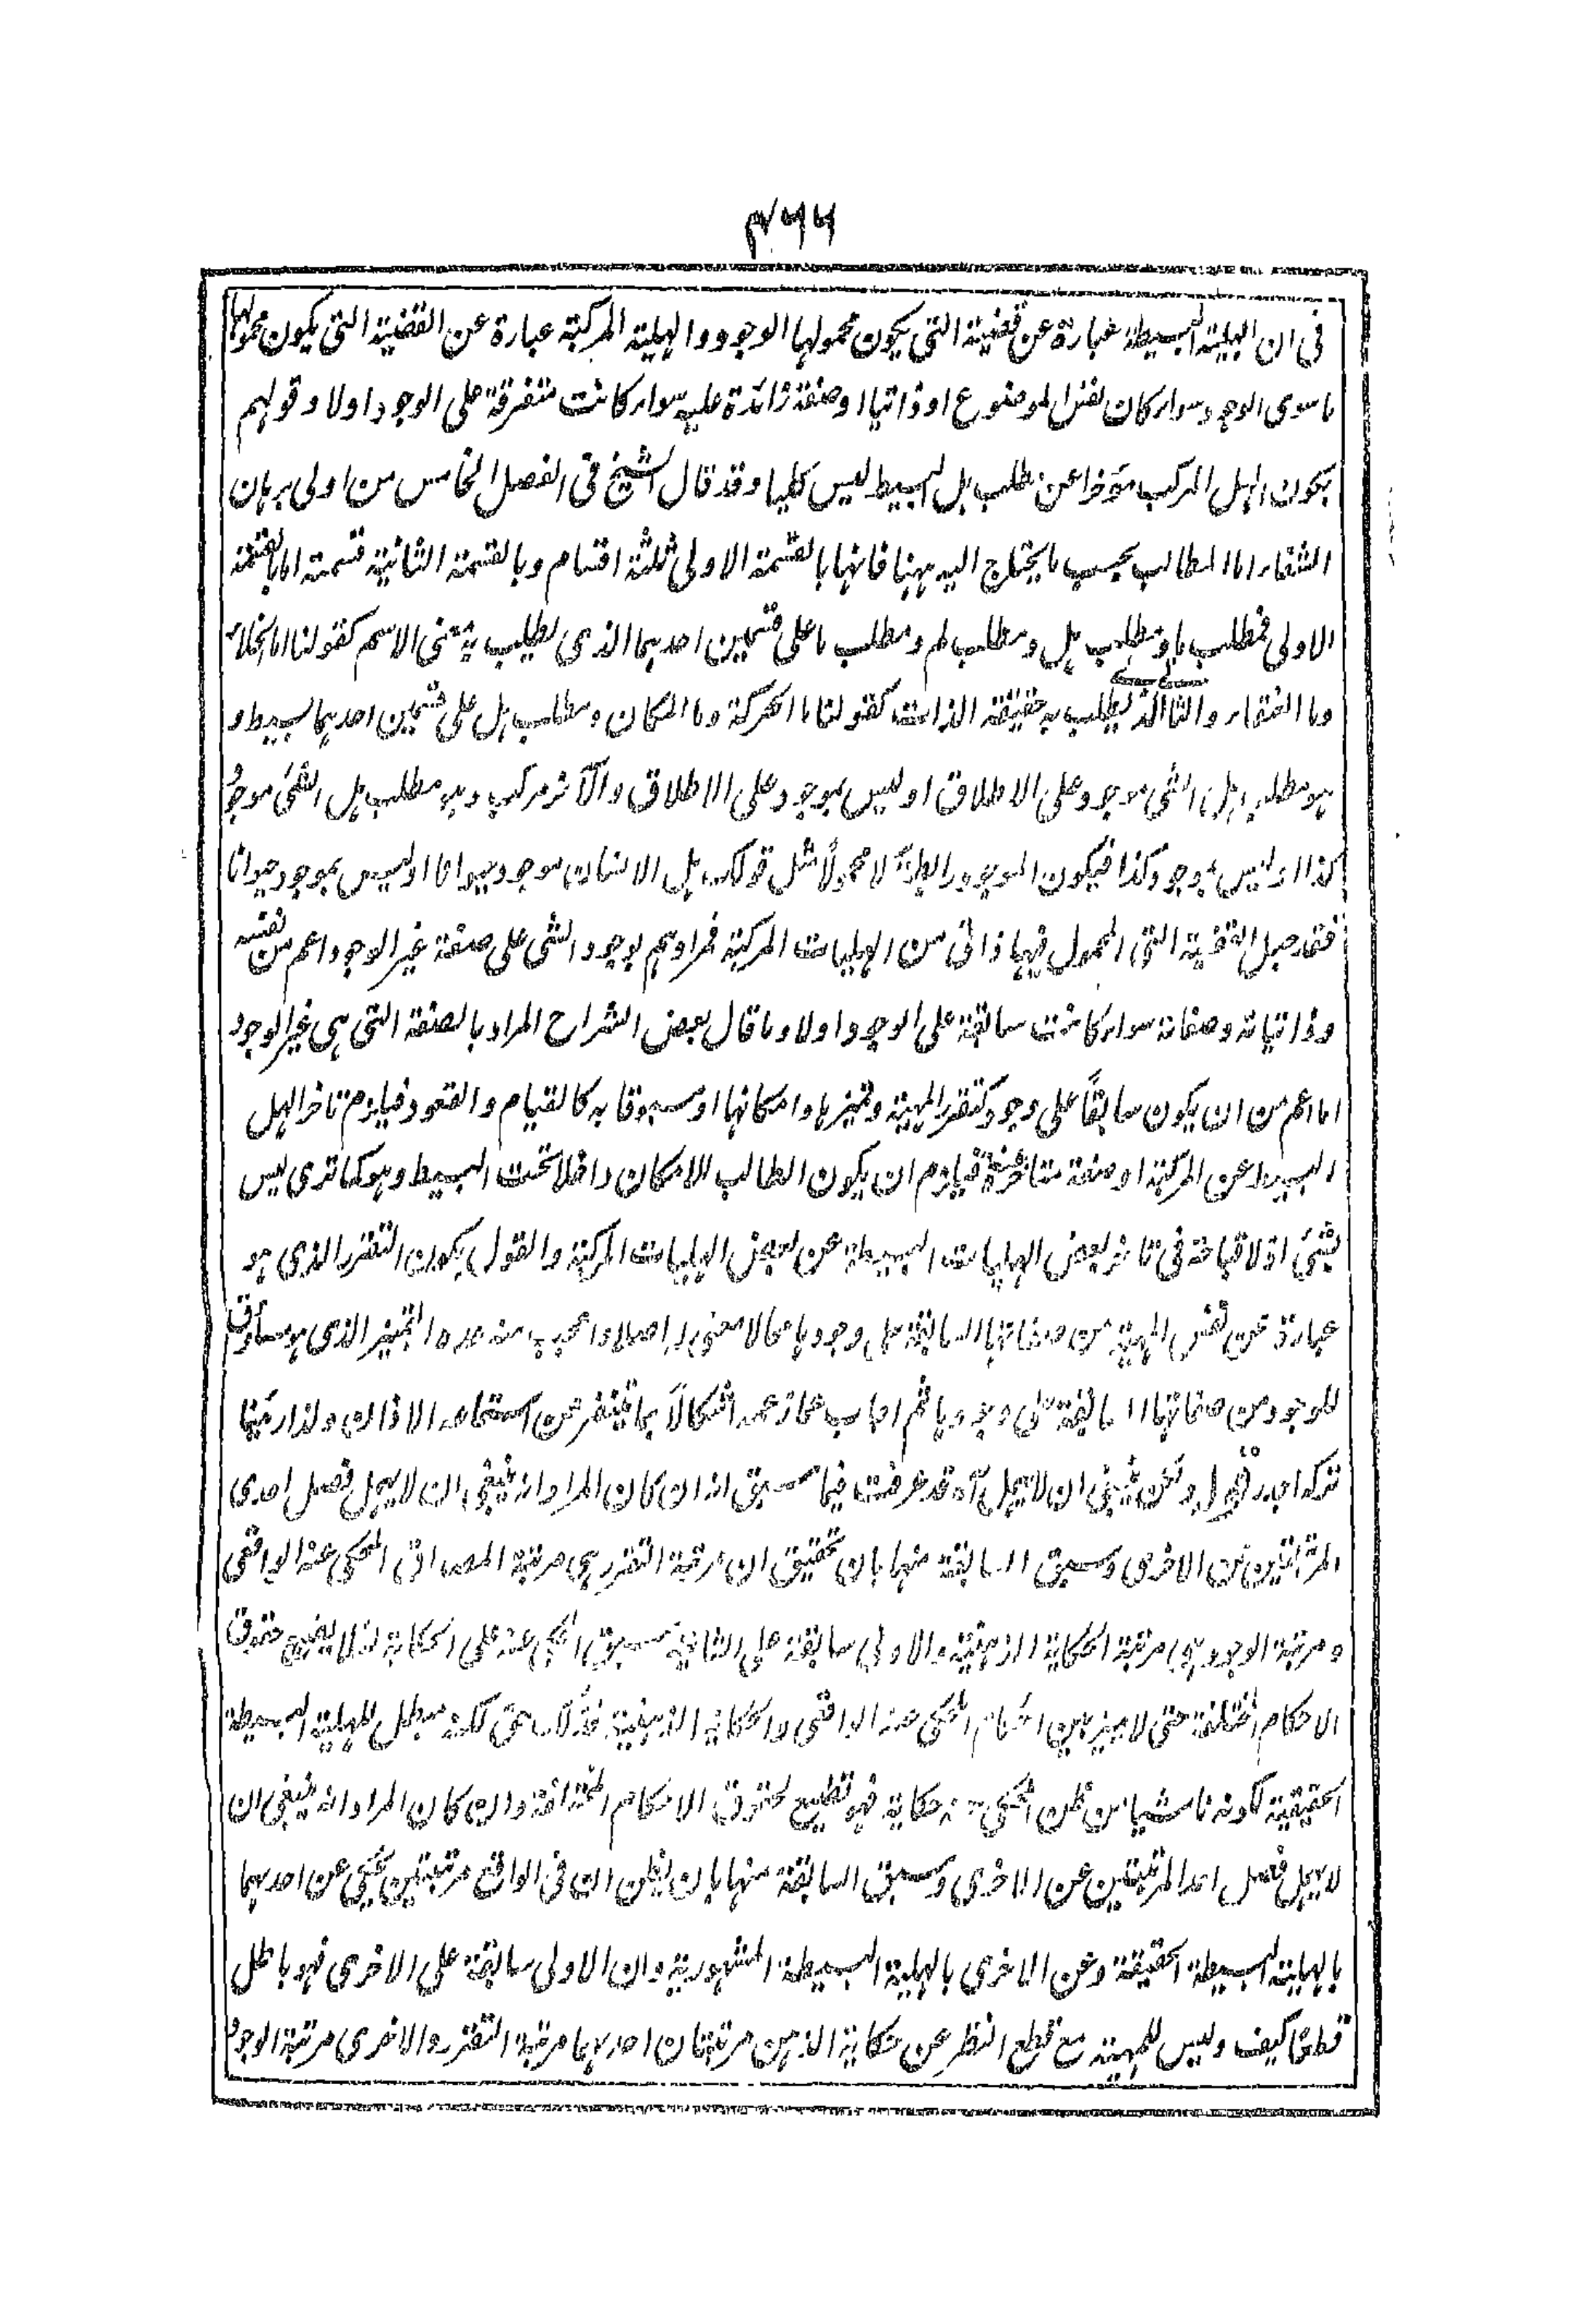 ٣٦٦
فى ان الهلية البسيطة عبارة عن قضية التى يكون محمولها الوجود والهلية المركبة عبارة عن القضية التى يكون محمولها
ما سوى الوجود سواء كان نفس الموضوع او ذاتيا او صفة زائدة عليه سواء كانت متفرقة على الوجود اولا وقولهم
بكون الهل المركب مؤخرا عن مطلب هل البسيط ليس كليا وقد قال الشيخ فى الفصل الخامس من اولى برهان
الشفاء اما المطالب بحسب ما يحتاج اليه ههنا فانها بالقسمة الاولى ثلثة اقسام وبالقسمة الثانية ستة اما بالقسمة
الاولى فمطلب ما ومطلب هل ومطلب لم ومطلب ما على قسمين احدهما الذى يطلب به معنى الاسم كقولنا ما الخلاء
وما العنقاء والثانى الذى يطلب به حقيقة الذات كقولنا ما الحركة وما المكان ومطلب هل على قسمين احدهما بسيط و
هو مطلب هل الشئ موجود على الاطلاق او ليس بموجود على الاطلاق والآخر مركب وهو مطلب هل الشئ موجود
كذا او ليس بموجود كذا فيكون الموجود رابطة لا محمولاً مثل قولك هل الانسان موجود حيوانا او ليس بموجود حيوانا
فقد جعل القضية التى المحمول فيها ذاتى من الهليات المركبة فمرادهم بوجود الشئ على صفة غير الوجود اعم من نفسه
وذاتياته وصفاته سواء كانت سابقة على الوجود اولا وما قال بعض الشراح المراد بالصفة التى هى غير الوجود
اما اعم من ان يكون سابقاً على وجود كتقرر المهية وتميزها وامكانها او مسبوقا به كالقيام والقعود فيلزم تاخر الهل
البسيط عن المركبة او صفة متاخرة عنه فيلزم ان يكون الطالب للامكان داخلا تحت البسيط وهو كما ترى ليس
بشئ اذ لا قباحة فى تاخر بعض الهليات البسيطة عن بعض الهليات المركبة والقول بكون التقرر الذى هو
عبارة عن نفس المهية من صفاتها السابقة على وجودها مما لا معنى له اصلا واعجب منه عده التميز الذى هو مساوق
للوجود من صفاتها السابقة على وجودها ثم اجاب عما زعمه اشكالاً بما يتنفر عن استماعه الاذان ولذا رئينا
تركه اجدر قوله وعن ينبغى ان لا يهمل آه قد عرفت فيما سبق انه ان كان المراد انه ينبغى ان لا يهمل فصل احدى
المرتبتين عن الاخرى وسبق السابقة منها بان تحقيق ان مرتبة التقرر هى مرتبة المصداق المحكى عنه الواقعى
ومرتبة الوجود هى مرتبة الحكاية الذهنية والاولى سابقة على الثانية سبق المحكى عنه على الحكاية لئلا يضيع حقوق
الاحكام المختلفة حتى لا يميز بين احكام المحكى عنه الواقعى والحكاية الذهنية فذلك حق لكنه مبطل للهلية البسيطة
الحقيقية لكونه ناشيا من ظن المحكى عنه حكاية فهو تضييع لحقوق الاحكام المختلفة وان كان المراد انه ينبغى ان
لا يهمل فصل احد المرتبتين عن الاخرى وسبق السابقة منها بان يظن ان فى الواقع مرتبتين يحكى عن احدهما
بالهلية البسيطة الحقيقة وعن الاخرى بالهلية البسيطة المشهورية وان الاولى سابقة على الاخرى فهو باطل
قطعا كيف وليس للمهية مع قطع النظر عن حكاية الذهن مرتبتان احدهما مرتبة التقرر والاخرى مرتبة الوجود